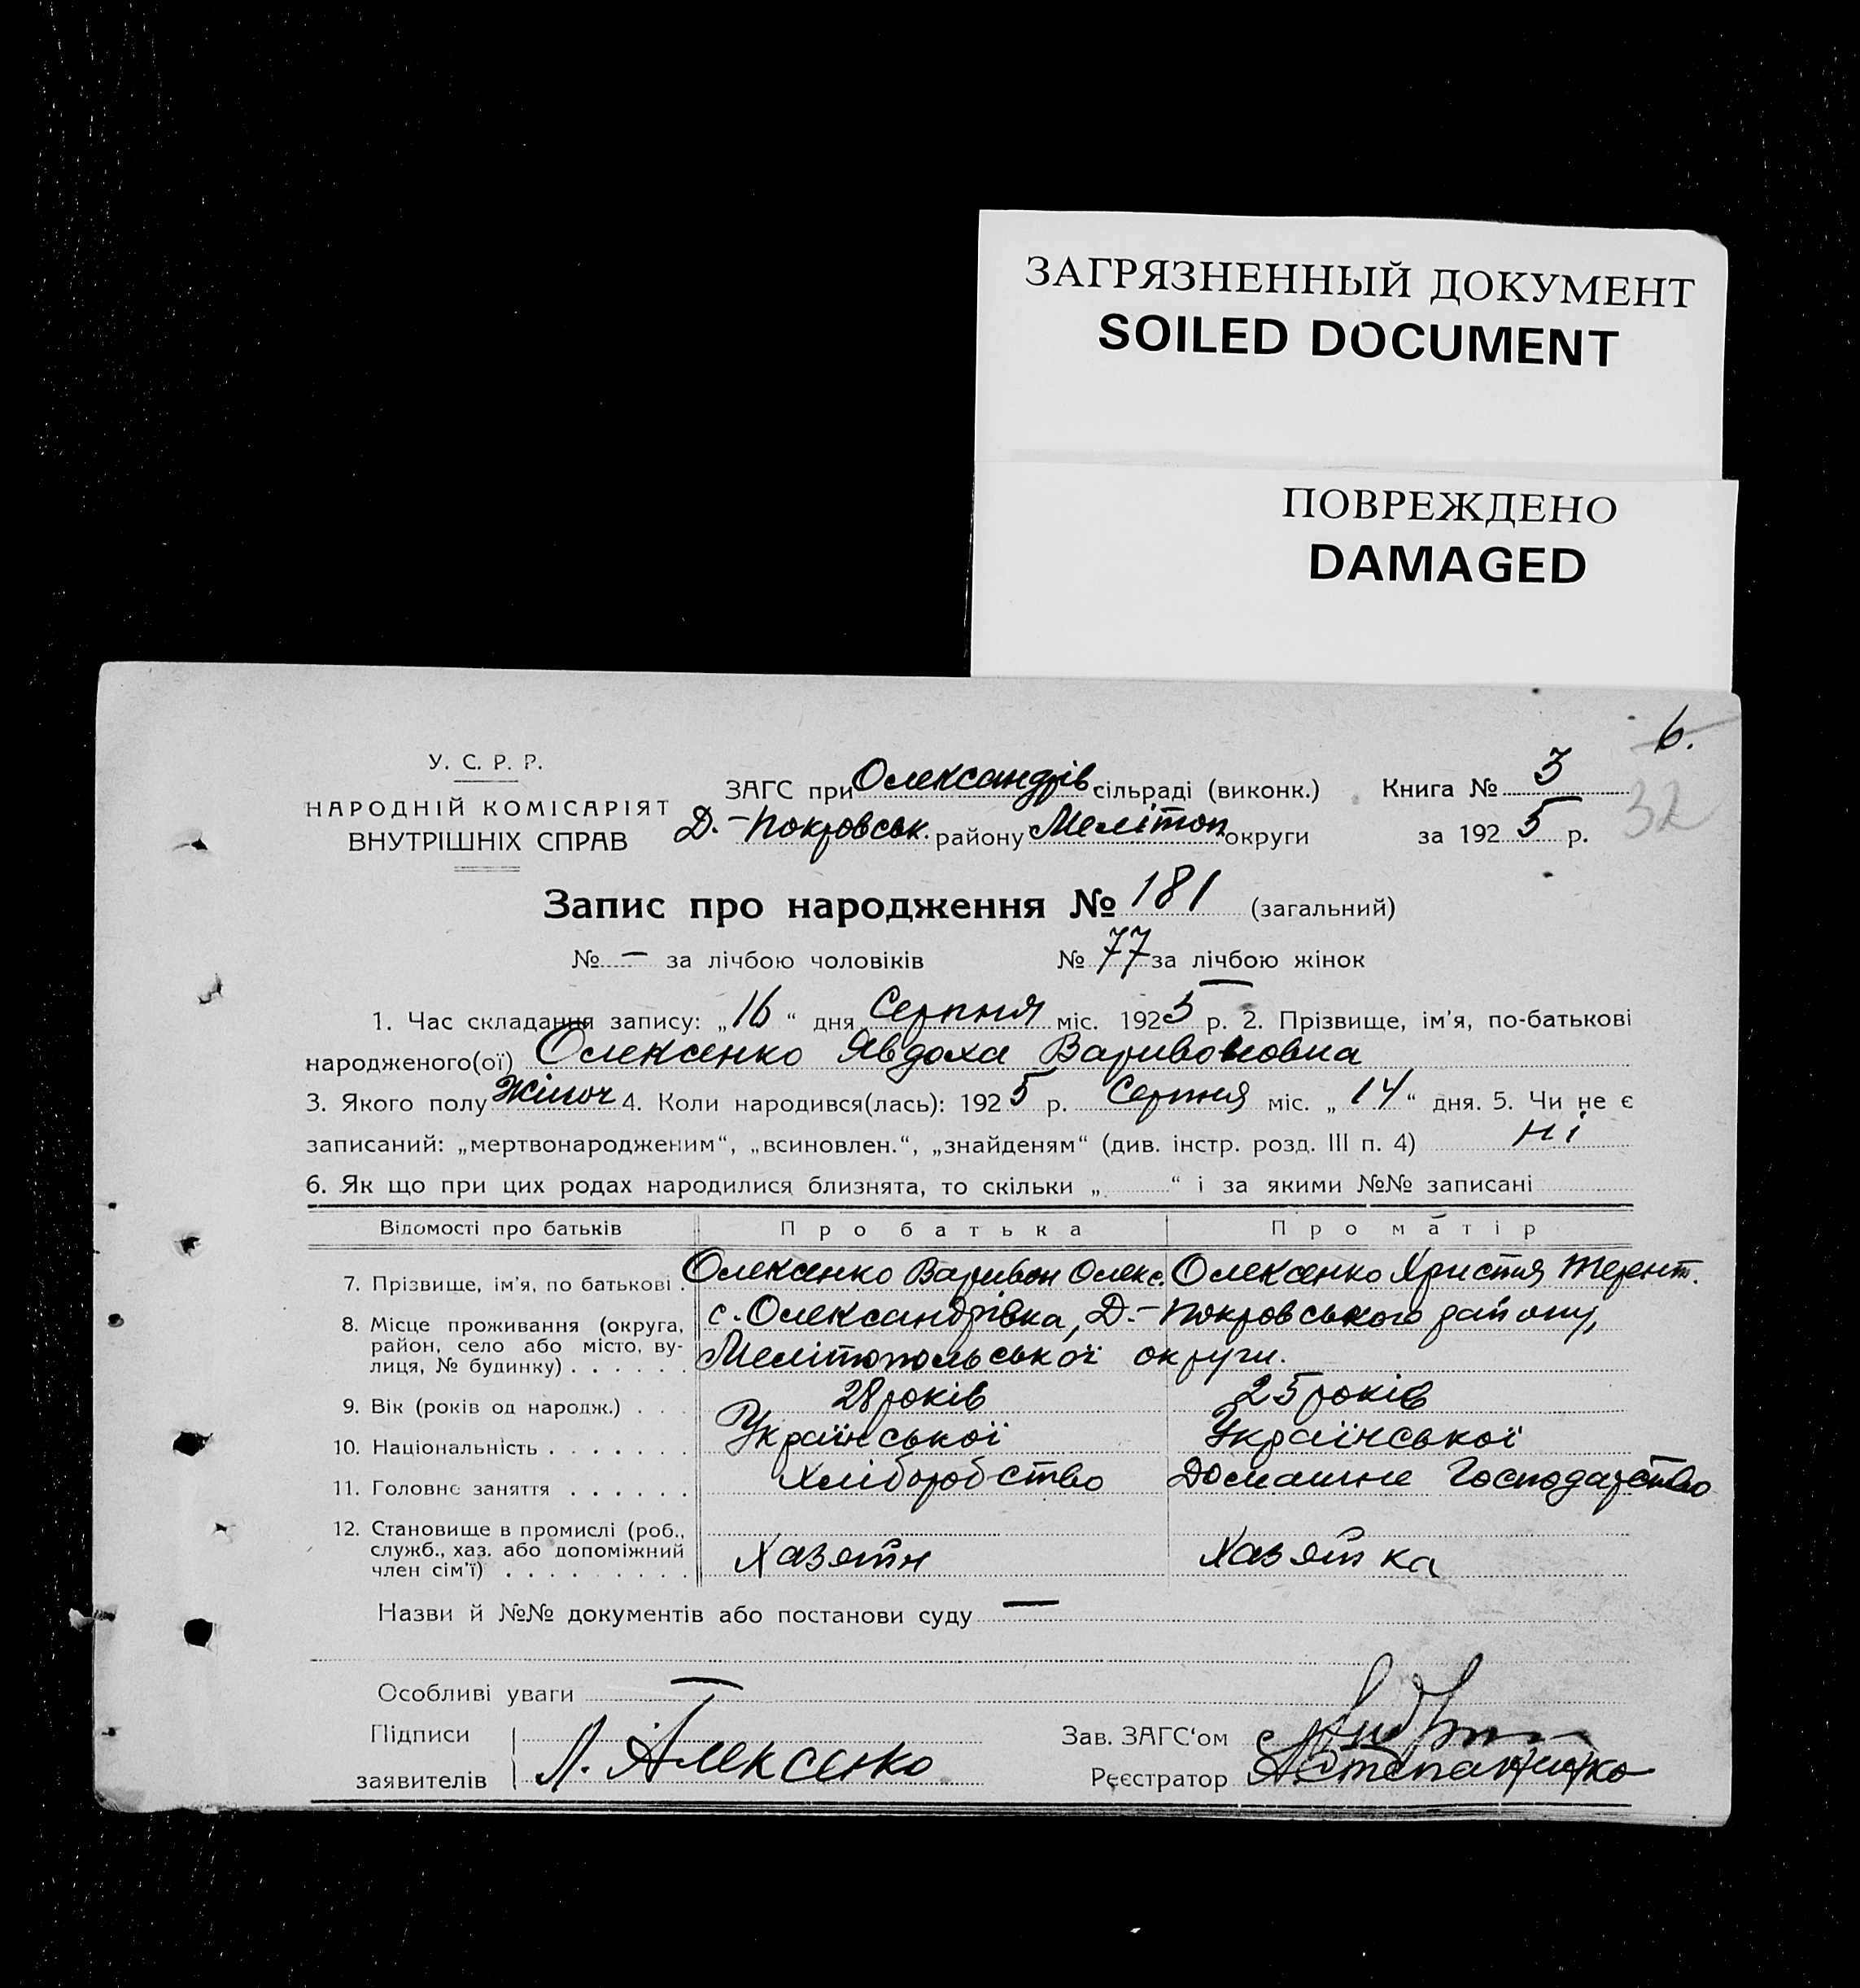 ЗАГРЯЗНЕННЫЙ ДОКУМЕНТ
SOILED DOCUMENT
ПОВРЕЖДЕНО
DAMAGED
6.
32
У. С. Р. Р.
НАРОДНІЙ КОМІСАРІЯТ
ВНУТРІШНІХ СПРАВ
ЗАГС при Олександрів сільраді (виконк.) Книга № 3
Д.-Покровськ. району Мелітоп округи за 1925 р.
Запис про народження № 181 (загальний)
№ — за лічбою чоловіків № 77 за лічбою жінок
1. Час складання запису: „16“ дня Серпня міс. 1925 р. 2. Прізвище, ім'я, по-батькові
народженого(ої) Олексенко Явдоха Варивоновна
3. Якого полу Жіноч 4. Коли народився(лась): 1925 р. Серпня міс. „14“ дня. 5. Чи не є
записаний: „мертвонародженим“, „всиновлен.“, „знайденям“ (див. інстр. розд. III п. 4) ні
6. Як що при цих родах народилися близнята, то скільки „ “ і за якими №№ записані
Відомості про батьків Про батька Про матір
7. Прізвище, ім'я, по батькові . Олексенко Варивон Олекс. Олексенко Христя Терент.
8. Місце проживання (округа, район, село або місто, вулиця, № будинку) . . . . . с. Олександрівка, Д.-Покровського району,
Мелітопольської округи.
9. Вік (років од народж.) . . . 28 років 25 років
10. Національність . . . . . . . Української Української
11. Головне заняття . . . . . . Хліборобство Домашнє Господарство
12. Становище в промислі (роб., служб., хаз. або допоміжний член сім'ї) . . . . . . . . . Хазяїн Хазяйка
Назви й №№ документів або постанови суду —
Особливі уваги —
Підписи
заявителів Л. Алексенко
Зав. ЗАГС'ом
Реєстратор